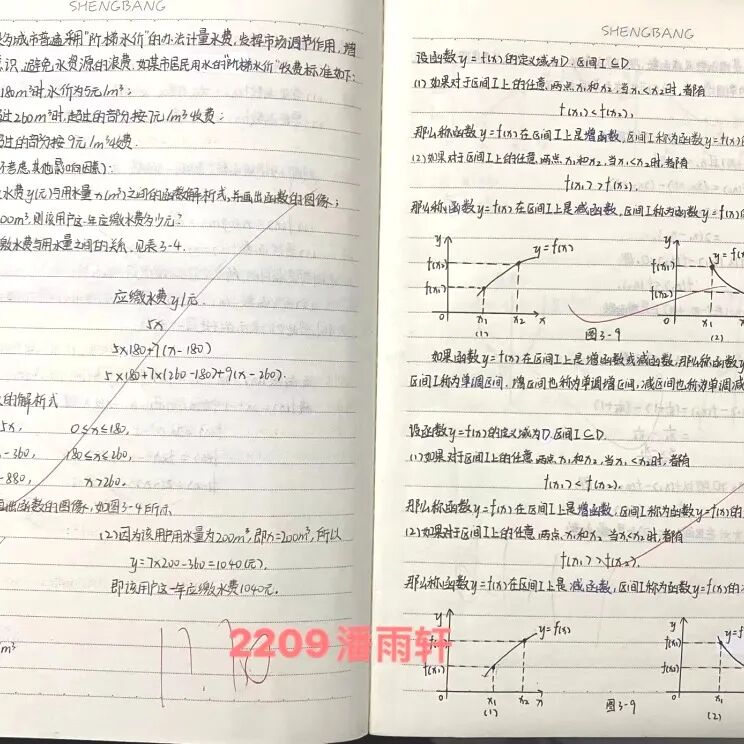 SHENGBANG
为城市普遍采用"阶梯水价"的办法计量水费,发挥市场调节作用,增
识,避免水资源的浪费.如某市居民用水的"阶梯水价"收费标准如下:
180m³时,水价为5元/m³;
过260m³时,超过的部分按7元/m³收费;
过的部分按9元/m³收费.
不考虑其他影响因素):
水费y(元)与用水量x(m³)之间的函数解析式,并画出函数的图像;
00m³,则该用户这一年应缴水费为少元?
缴水费与用水量之间的关系,见表3-4.
应缴水费y/元
5x
5×180+7(x-180)
5×180+7×(260-180)+9(x-260).
的解析式
5x, 0≤x≤180,
-360, 180≤x≤260,
-880, x>260.
画出函数的图像,如图3-4所示
(2)因为该用户用水量为200m³,即x=200m³,所以
y=7×200-360=1040(元).
即该用户这一年应缴水费1040元.
m³
SHENGBANG
设函数y=f(x)的定义域为D,区间I⊆D.
(1)如果对于区间I上的任意两点x₁和x₂,当x₁<x₂时,都有
f(x₁)<f(x₂),
那么称函数y=f(x)在区间I上是增函数,区间I称为函数y=f(x)的
(2)如果对于区间I上的任意两点x₁和x₂,当x₁<x₂时,都有
f(x₁)>f(x₂)
那么称函数y=f(x)在区间I上是减函数,区间I称为函数y=f(x)的
y
y=f(x)
f(x₂)
f(x₁)
0 x₁ x₂ x
(1)
图3-9
y
y=f(x
f(x₁)
f(x₂)
0 x₁
(2)
如果函数y=f(x)在区间I上是增函数或减函数,那么称函数y
区间I称为单调区间,增区间也称为单调增区间,减区间也称为单调减
设函数y=f(x)的定义域为D,区间I⊆D.
(1)如果对于区间I上的任意两点x₁和x₂,当x₁<x₂时,都有
f(x₁)<f(x₂).
那么称函数y=f(x)在区间I上是增函数,区间I称为函数y=f(x)的
(2)如果对于区间I上的任意两点x₁和x₂,当x₁<x₂时,都有
f(x₁)>f(x₂).
那么称函数y=f(x)在区间I上是减函数,区间I称为函数y=f(x)的
y
y=f(x)
f(x₂)
f(x₁)
0 x₁ x₂ x
(1)
图3-9
y
y=f
f(x₁)
f(x₂)
0 x₁
(2)
2209潘雨轩